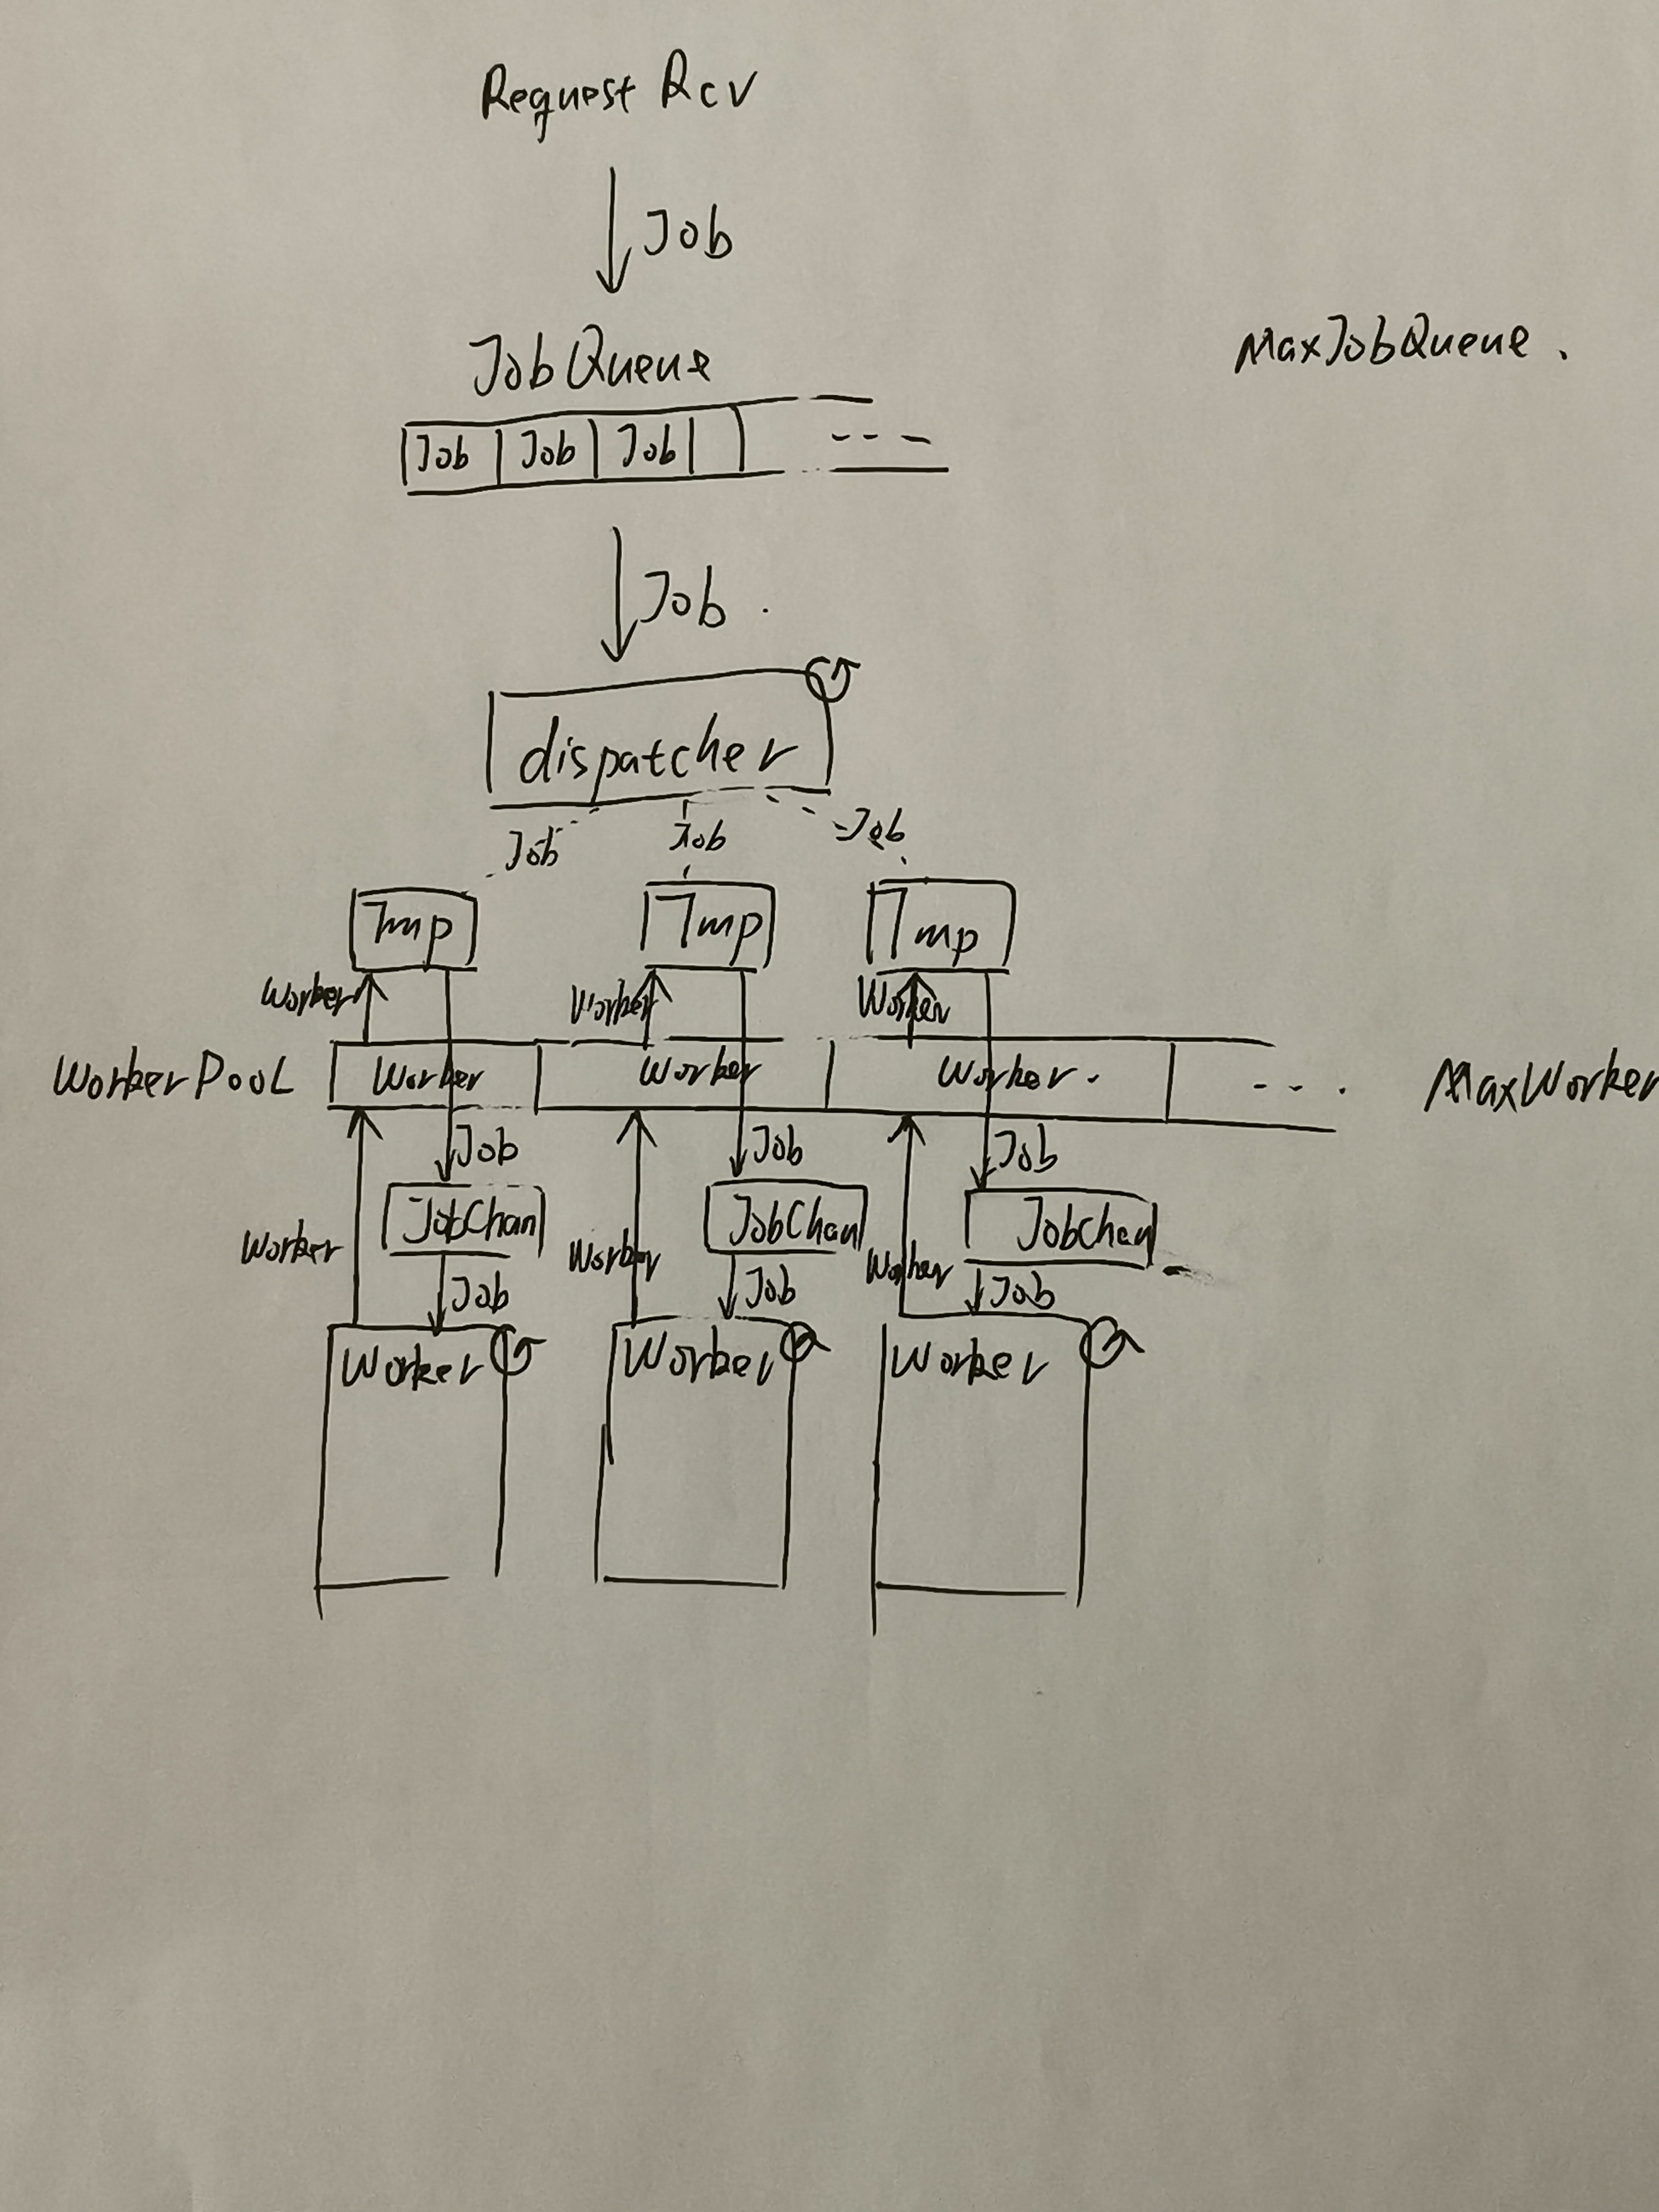 Request Rcv
Job
JobQueue
MaxJobQueue.
Job Job Job ---
Job.
dispatcher
Job Job Job
Tmp Tmp Tmp
Worker Worker Worker
WorkerPooL Worker Worker Worker. --- . MaxWorker
Job Job Job
JobChan JobChan JobChan
Worker Worker Worker
Job Job Job
Worker Worker Worker